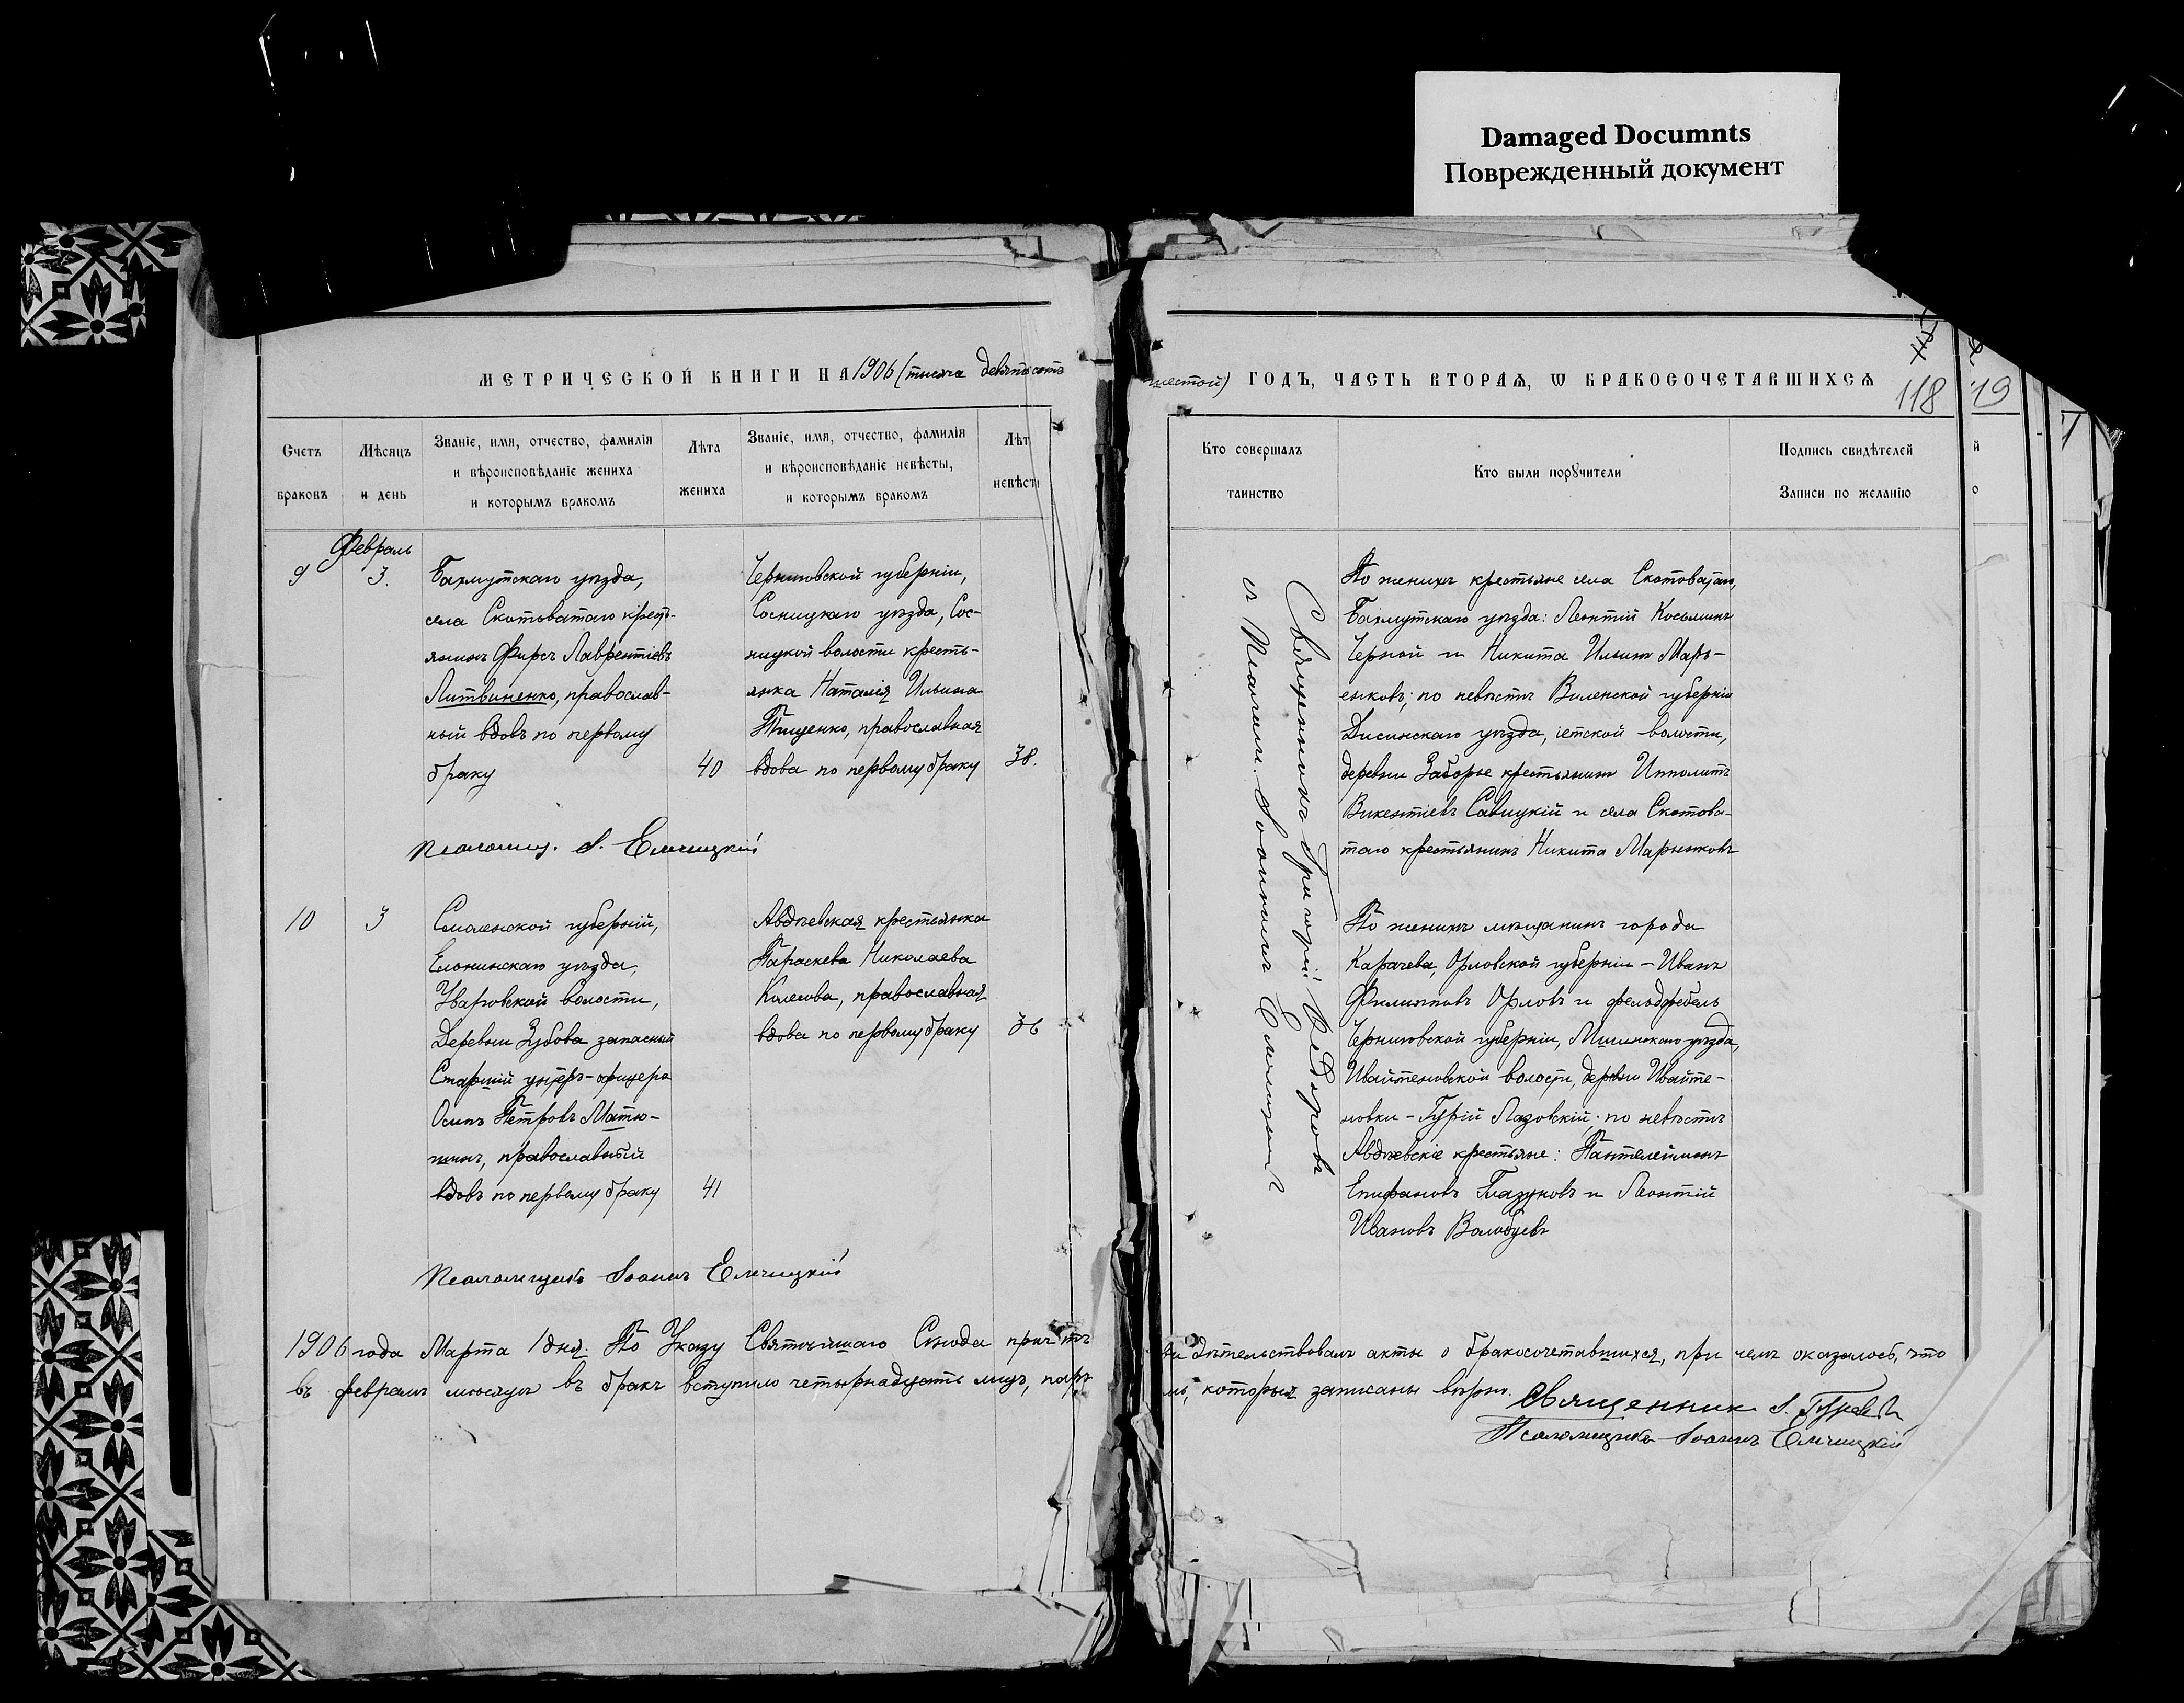 Damaged Documnts
Поврежденный документ
МЕТРИЧЕСКОЙ КНИГИ НА 1906 (тысяча девятьсотъ
шестой) ГОДЪ, ЧАСТЬ ВТОРАЯ, Ѡ БРАКОСОЧЕТАВШИХСЯ
118
19
Счетъ
браковъ
Мѣсяцъ
и день
Званіе, имя, отчество, фамилія
и вѣроисповѣданіе жениха
и которымъ бракомъ
Лѣта
жениха
Званіе, имя, отчество, фамилія
и вѣроисповѣданіе невѣсты,
и которымъ бракомъ
Лѣт
невѣст
Кто совершалъ
таинство
Кто были порꙋчители
Подпись свидѣтелей
Записи по желанію
й
о
Февраль
9
3.
Бахмутскаго уѣзда,
села Скотоватаго крест-
янинъ Фирсъ Лаврентіевъ
Литвиненко, православ-
ный вдовъ по первому
браку
40
Черниговской губерніи,
Сосницкаго уѣзда, Сос-
ницкой волости кресть-
янка Наталія Ильина
Тищенко, православная
вдова по первому браку
38.
По женихѣ крестьяне села Скотоватаго,
Бахмутскаго уѣзда: Леонтій Косьминъ
Черной и Никита Ильинъ Марь-
енковъ; по невѣстѣ Виленской губерніи
Дисинскаго уѣзда, волости,
деревни Заборье крестьянинъ Ипполитъ
Викентіевъ Савицкій и села Скотова-
таго крестьянинъ Никита Марьенковъ
Священникъ Григорій
съ Псалом. Іоанномъ
Псаломщ. І. Елчицкій
10
3
Смоленской губерніи,
Ельнинскаго уѣзда,
Уваровской волости,
Деревни Зубова запасный
Старшій унтеръ-офицеръ
Осипъ Петровъ Матю-
шинъ, православный
вдовъ по первому браку
41
Авдѣевская крестьянка
Параскева Николаева
Колесова, православная
вдова по первому браку
36
По женихѣ мѣщанинъ города
Карачева, Орловской губерніи - Иванъ
Филиповъ Орловъ и фельдфебель
Черниговской губерніи, Мглинскаго уѣзда,
Ивайтеновской волости, деревни Ивайте-
новки - Гурій Лазовскій; по невѣстѣ
Авдѣевскіе крестьяне: Пантелеймонъ
Епифановъ Глазуновъ и Леонтій
Ивановъ Волобуевъ
Псаломщикъ Іоаннъ Елчицкій
1906 года Марта 1 дня. По Указу Святѣйшаго Синода причтъ дѣтельствовалъ акты о бракосочетавшихся, при чемъ оказалось, что
въ февралѣ мѣсяцѣ въ бракъ вступило четырнадцать лицъ, которыя записаны вѣрно.
Священникъ
Псаломщикъ Іоаннъ Елчицкій